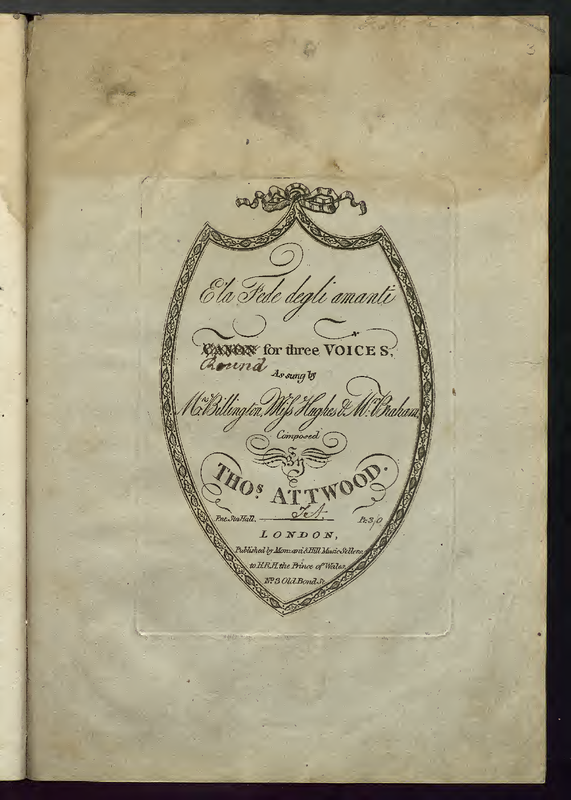 3
E la Fede degli amanti
CANON for three VOICES,
Round
As sung by
Mrs. Billington, Miss Hughes & Mr. Braham
Composed
By
THOs. ATTWOOD.
Ent. Sta. Hall. TA Pr. 3/0
LONDON,
Published by Monzani & Hill Music Sellers
to H.R.H. the Prince of Wales,
No. 3 Old Bond St.